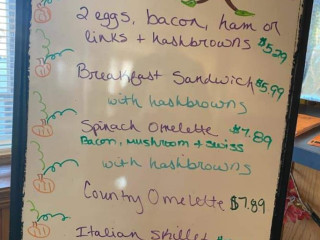 2 eggs, bacon, ham or
links + hashbrowns $5.29
Breakfast Sandwich $5.99
with hashbrowns
Spinach Omelette $7.89
Bacon, Mushroom + Swiss
with hashbrowns
Country Omelette $7.89
Italian Skillet